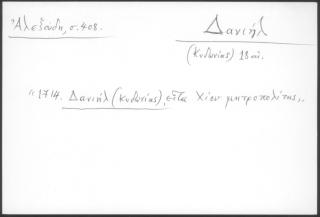 Ἀλεξούδη, σ. 408.
Δανιήλ
(Κυδωνίας) 18 αἰ.
"1714. Δανιήλ (Κυδωνίας), εἶτα Χίου μητροπολίτης,.